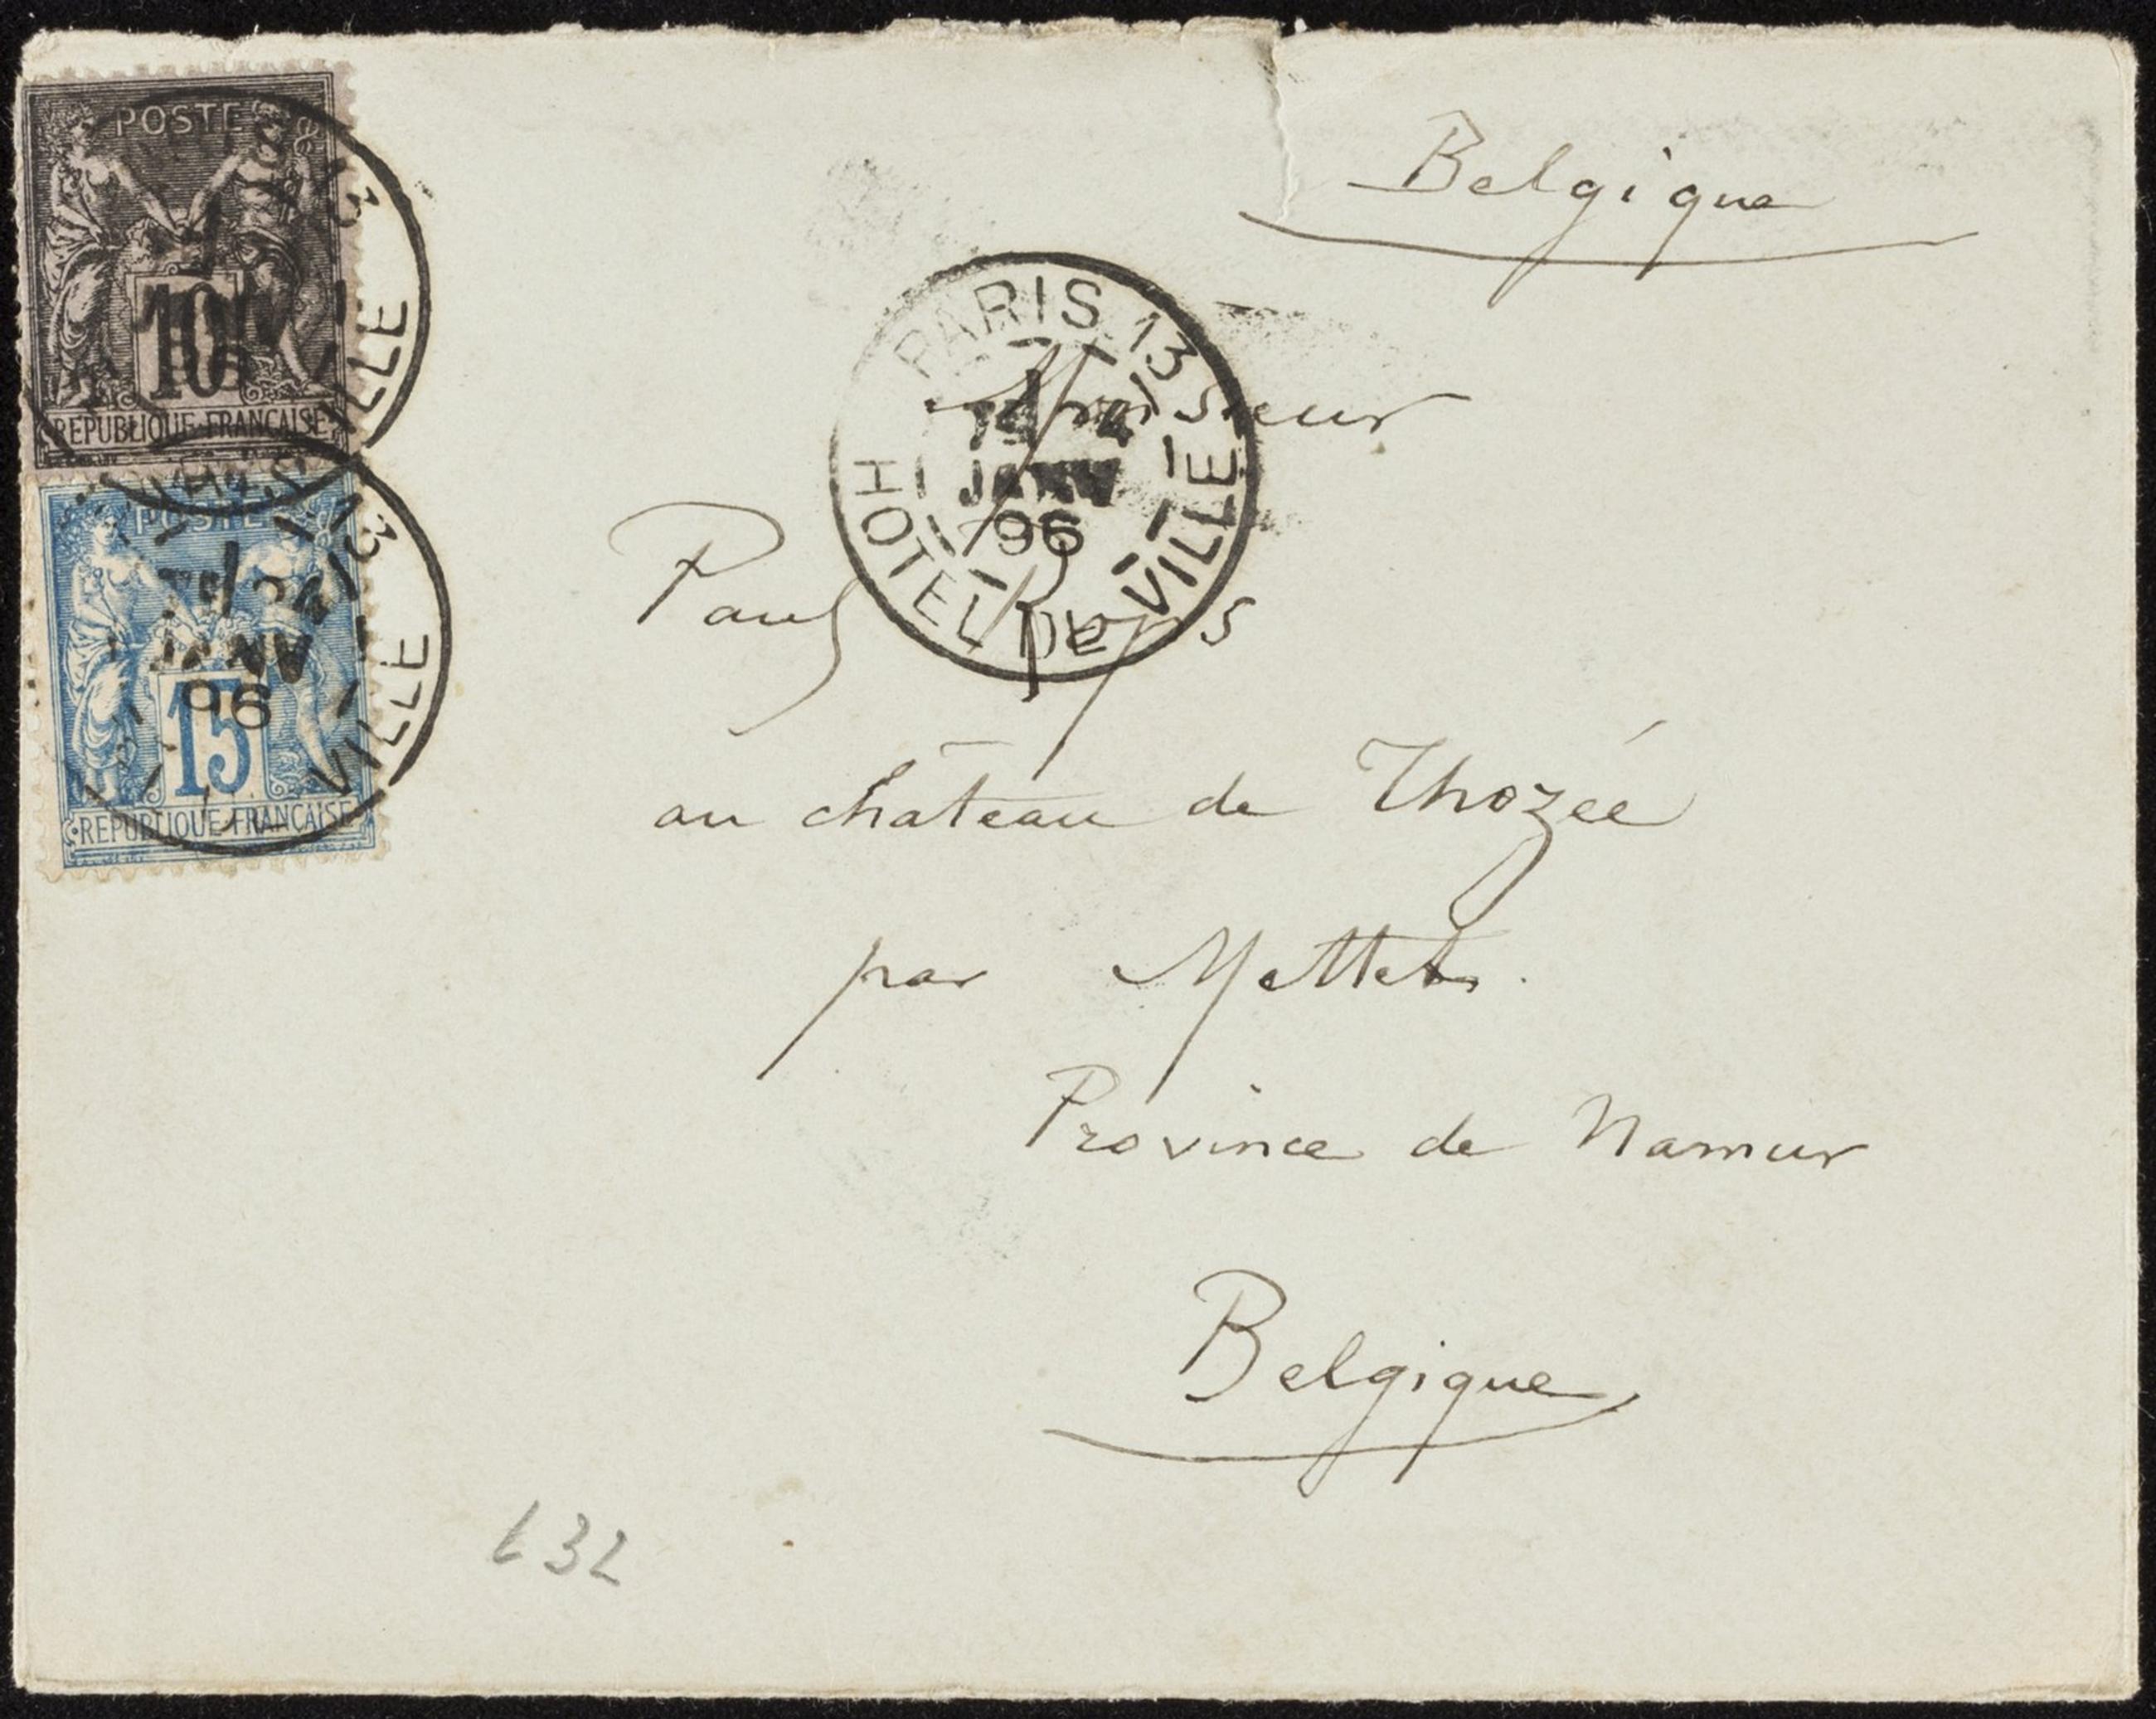 POSTE
10
REPUBLIQUE FRANÇAISE
VILLE
POSTE
15
REPUBLIQUE FRANÇAISE
13
96
VILLE
Belgique
PARIS 13
JANV
96
HOTEL DE VILLE
Monsieur
Paul Rops
au château de Thozée
par Mettet.
Province de Namur
Belgique
632